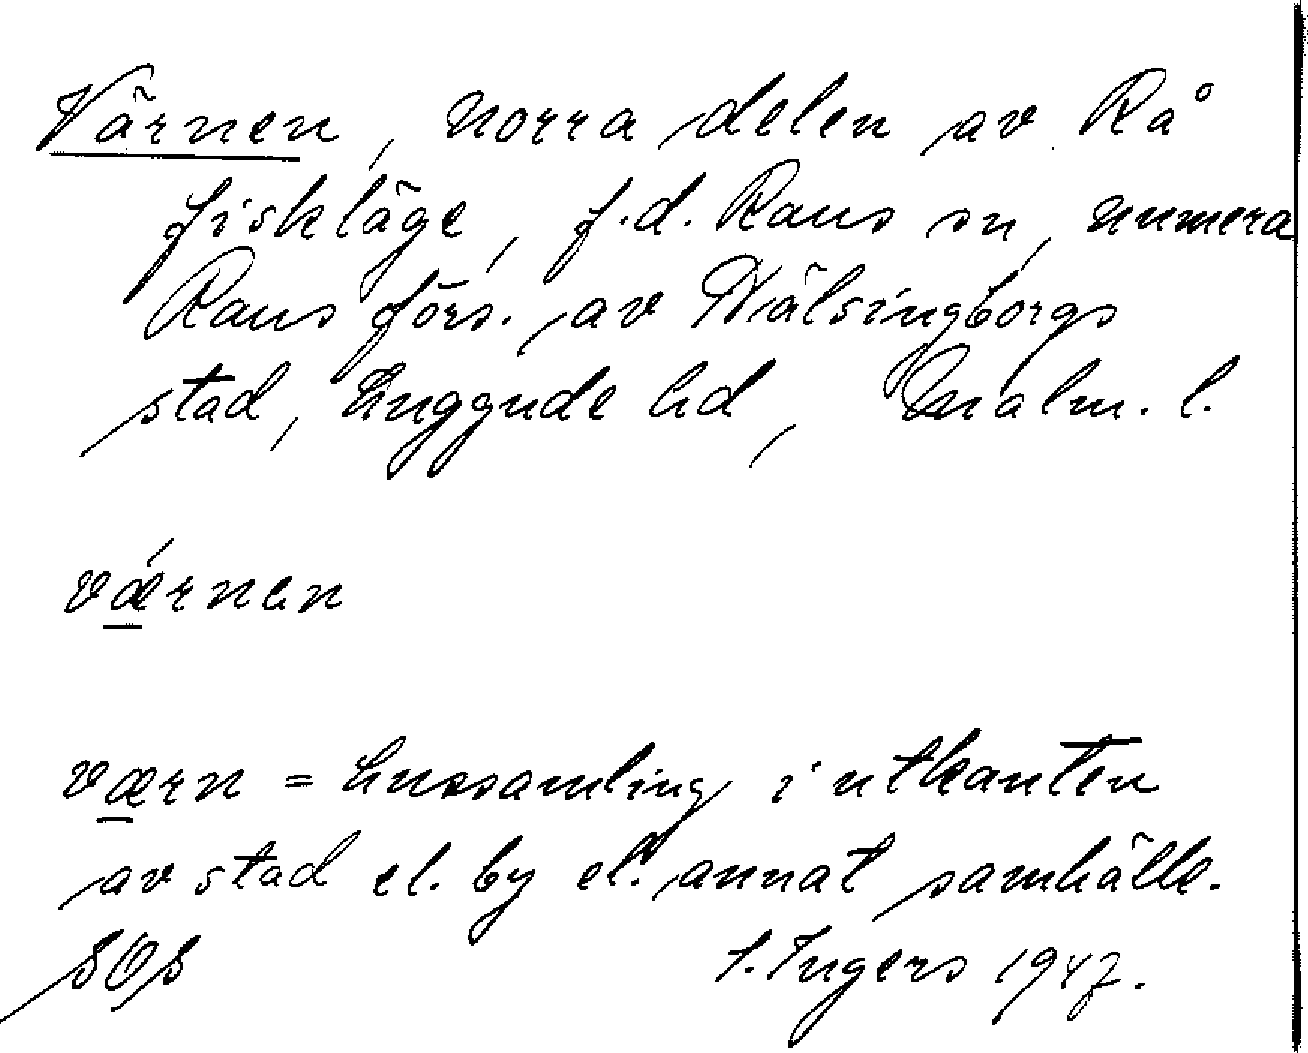 Värnen, norra delen av Rå
fiskläge, f.d. Raus sn, numera
Raus förs. av Hälsingborgs
stad, Luggude hd, Malm. l.
vǽrnen
værn = hussamling i utkanten
av stad el. by el. annat samhälle.
I. Ingers 1947.